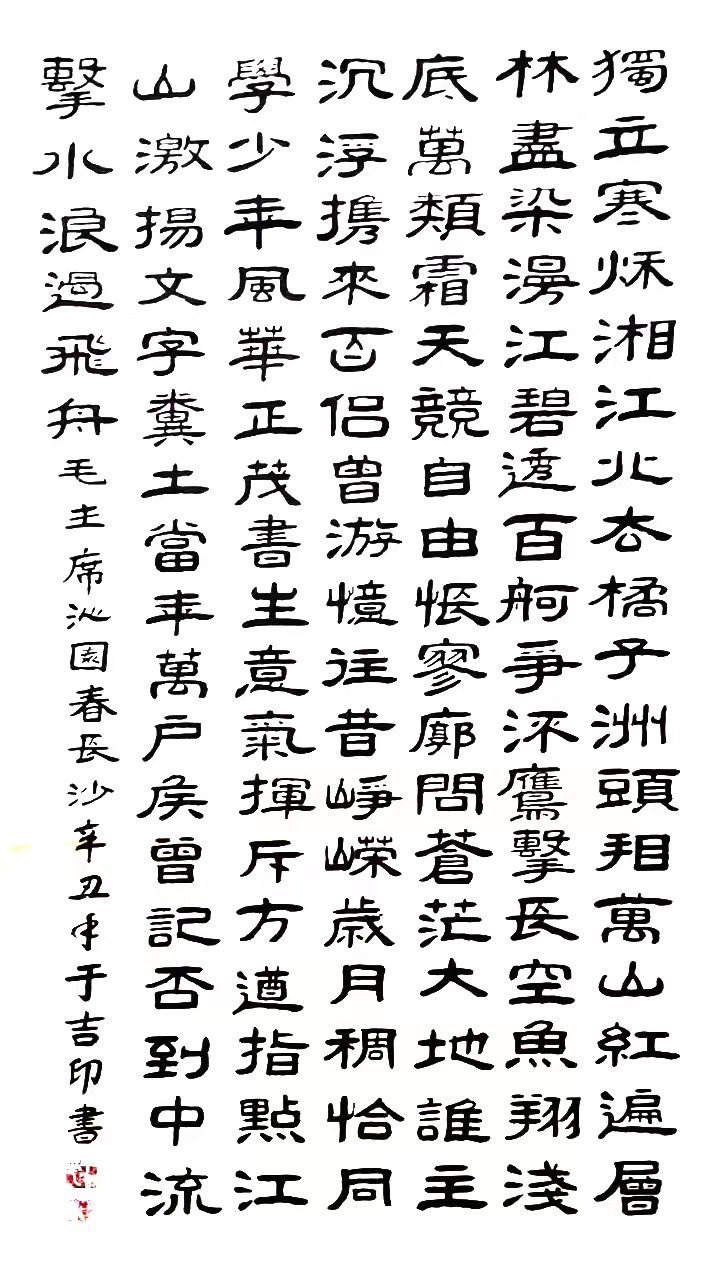 獨立寒秌湘江北去橘子洲頭看萬山紅遍層
林盡染漫江碧透百舸爭流鷹擊長空魚翔淺
底萬類霜天競自由悵寥廓問蒼茫大地誰主
沉浮携來百侶曾游憶往昔崢嶸歲月稠恰同
學少年風華正茂書生意氣揮斥方遒指點江
山激揚文字糞土當年萬户侯曾記否到中流
擊水浪遏飛舟毛主席沁園春長沙辛丑年于吉印書